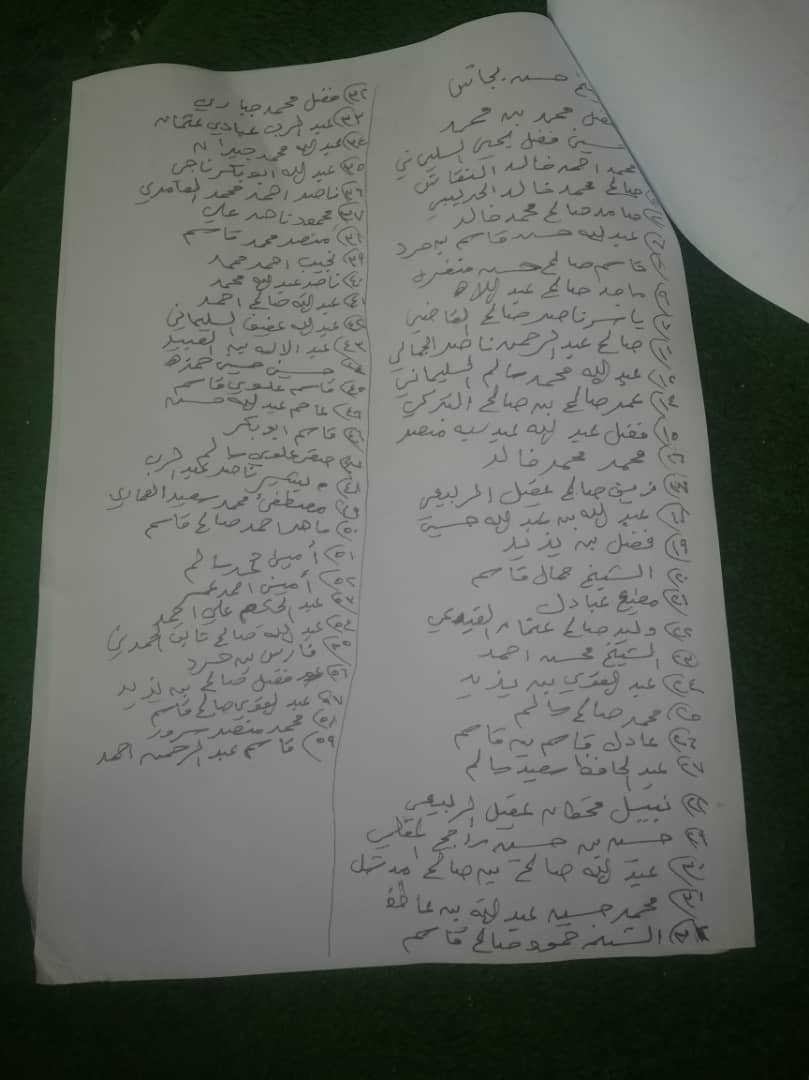 حسين بجاش
محمد بن محمد
حسين فضل يحيى السليماني
محمد احمد خالد النقاش
صالح محمد خالد الحريبي
حامد صالح محمد خالد
عبدالله حسن قاسم بن حرد
قاسم صالح حسن منصر
ماجد صالح عبد اللاه
ياسر ناصر صالح القاضي
صالح عبد الرحمن ناصر الجمالي
عبدالله محمد سالم السليماني
عمر صالح بن صالح التركي
فضل عبد الله عبد منصر
محمد محمد خالد
صالح عقيل الربيعي
عبدالله بن عبدالله حسين
فضل بن يزيد
الشيخ جمال قاسم
مطيع عبادل
وليد صالح عثمان
الشيخ محسن احمد
عبد القوي بن يزيد
محمد صالح سالم
عادل قاسم بن قاسم
عبد الحافظ سعيد سالم
نبيل قحطان عقيل الربيعي
حسن بن حسن راجح
عبد الله صالح بن صالح
محمد حسين عبدالله بن عاطف
الشيخ حمود صالح قاسم
٣٢ فضل محمد جباري
٣٣ عبد الرب عبادي عثمان
٣٤ عبدالله محمد جبران
٣٥ عبدالله ابوبكر ناجي
٣٦ ناصر احمد محمد العامري
٣٧ محمود ناصر علي
٣٨ منصر محمد قاسم
٣٩ نجيب احمد محمد
٤٠ ناصر عبدالله محمد
٤١ عبدالله صالح احمد
٤٢ عبدالله عفيف السليماني
٤٣ عبد الاله بن العبيد
٤٤ حسين حسين حمزه
٤٥ قاسم علوي قاسم
٤٥ عاصم عبدالله حسن
٤٦ قاسم ابوبكر
٤٧ صقر علوي سالم
٤٨ ناصر عبد الرب
٤٩ مصطفى محمد سعيد العماري
٥٠ ماهر احمد صالح قاسم
٥١ أمين محمد سالم
٥٢ أمين احمد عمر
٥٣ عبد الحكيم علي احمد
٥٤ عبدالله صالح
٥٥ فارس بن حرد
٥٦ فضل صالح بن يزيد
٥٧ عبد القوي صالح قاسم
٥٨ محمد منصر سرور
٥٩ قاسم عبد الرحمن احمد